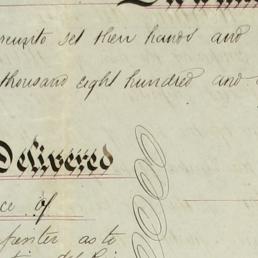 hereunto set their hands and
thousand eight hundred and
Delivered
ce of
penter as to